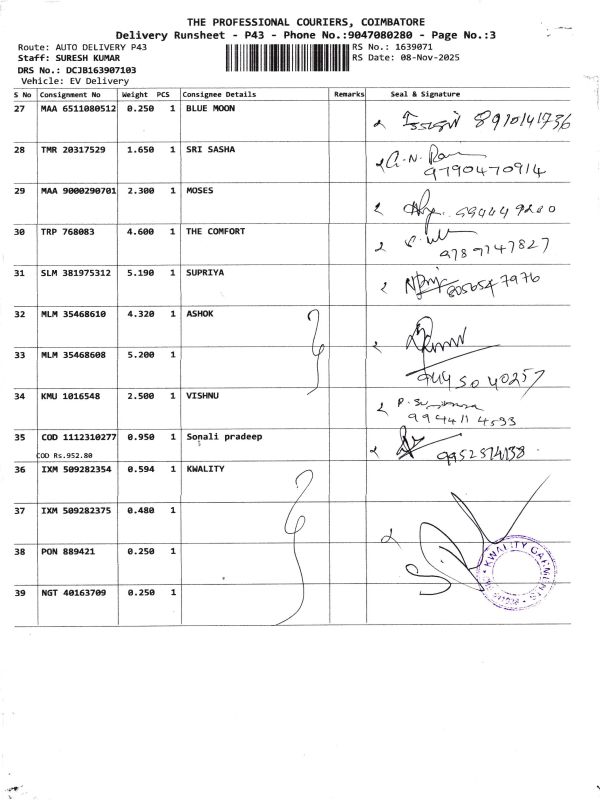 THE PROFESSIONAL COURIERS, COIMBATORE
Delivery Runsheet - P43 - Phone No.:9047080280 - Page No.:3
Route: AUTO DELIVERY P43 RS No.: 1639071
Staff: SURESH KUMAR RS Date: 08-Nov-2025
DRS No.: DCJB163907103
Vehicle: EV Delivery
S No Consignment No Weight PCS Consignee Details Remarks Seal & Signature
27 MAA 6511080512 0.250 1 BLUE MOON 8910141736
28 TMR 20317529 1.650 1 SRI SASHA
9790470914
29 MAA 9000290701 2.300 1 MOSES
30 TRP 768083 4.600 1 THE COMFORT
9789747827
31 SLM 381975312 5.190 1 SUPRIYA
8056547976
32 MLM 35468610 4.320 1 ASHOK
33 MLM 35468608 5.200 1
9445040257
34 KMU 1016548 2.500 1 VISHNU
9944114593
35 COD 1112310277 0.950 1 Sonali pradeep
COD Rs.952.80
36 IXM 509282354 0.594 1 KWALITY
37 IXM 509282375 0.480 1
38 PON 889421 0.250 1
KWALITY GARMENTS
39 NGT 40163709 0.250 1